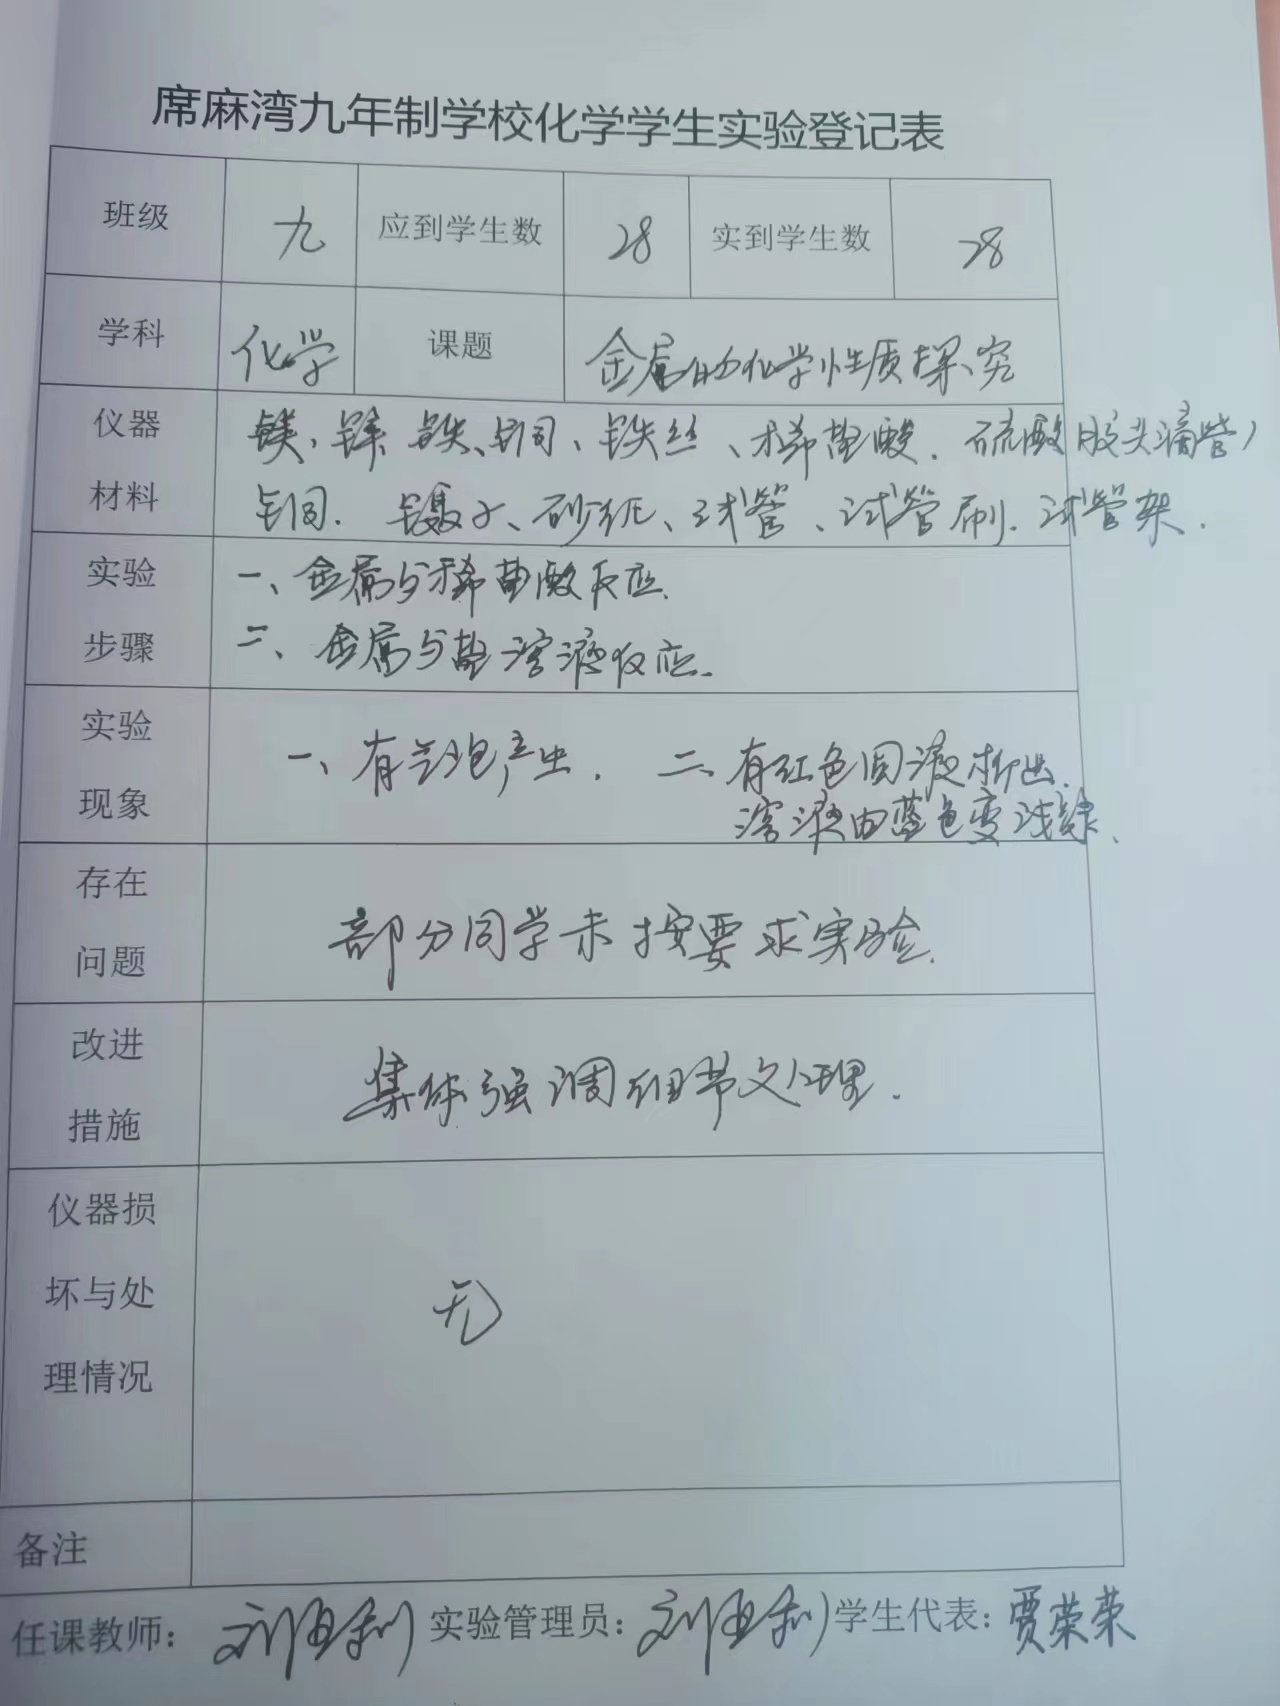 席麻湾九年制学校化学学生实验登记表
班级 九 应到学生数 28 实到学生数 28
学科 化学 课题 金属的化学性质探究
仪器 镁、锌、铁、铜、铁丝、稀盐酸、硫酸 胶头滴管
材料 铜、镊子、砂纸、试管、试管刷、试管架.
实验 一、金属与稀盐酸反应.
步骤 二、金属与盐溶液反应.
实验 一、有气泡产生. 二、有红色固液析出.
现象 溶液由蓝色变浅绿、
存在
问题 部分同学未按要求实验.
改进
措施 集体强调细节处理.
仪器损
坏与处 无
理情况
备注
任课教师: 实验管理员: 学生代表: 贾荣荣